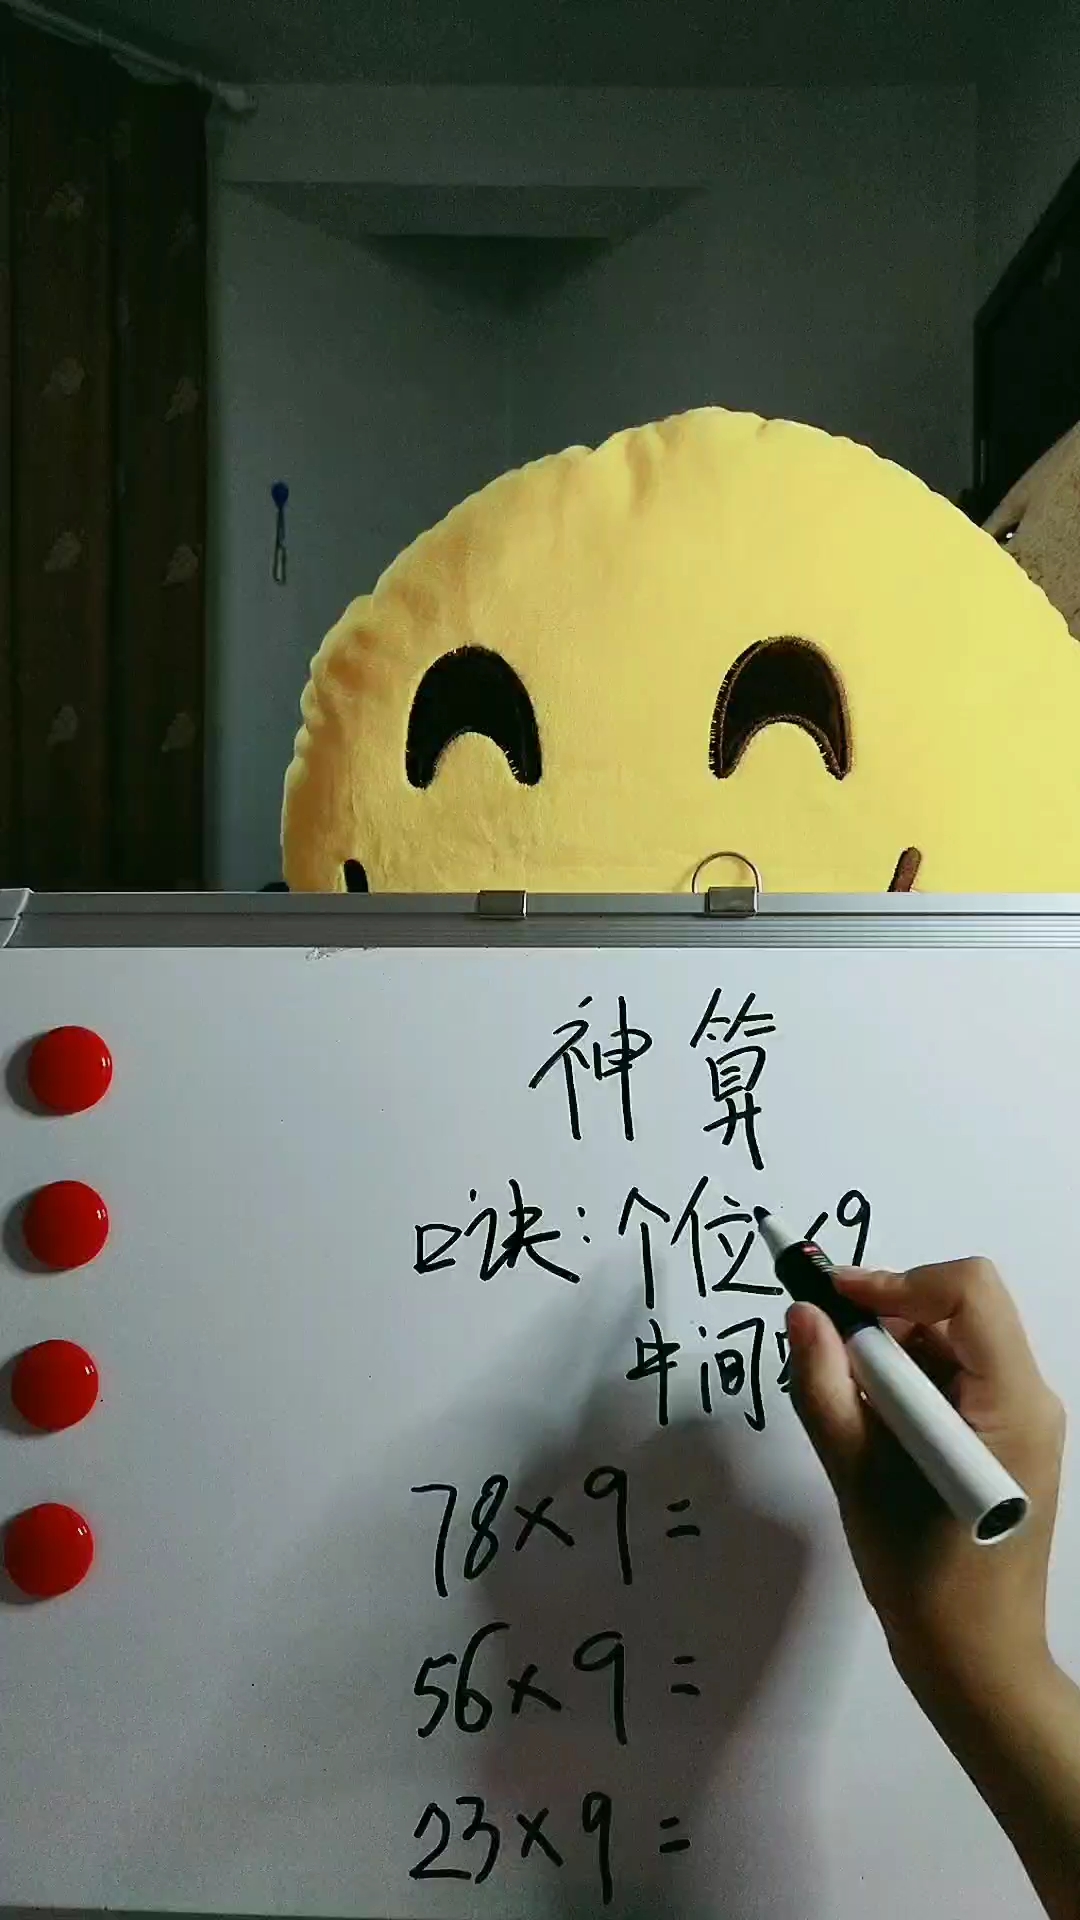 神算
口诀:个位×9
中间
78×9=
56×9=
23×9=